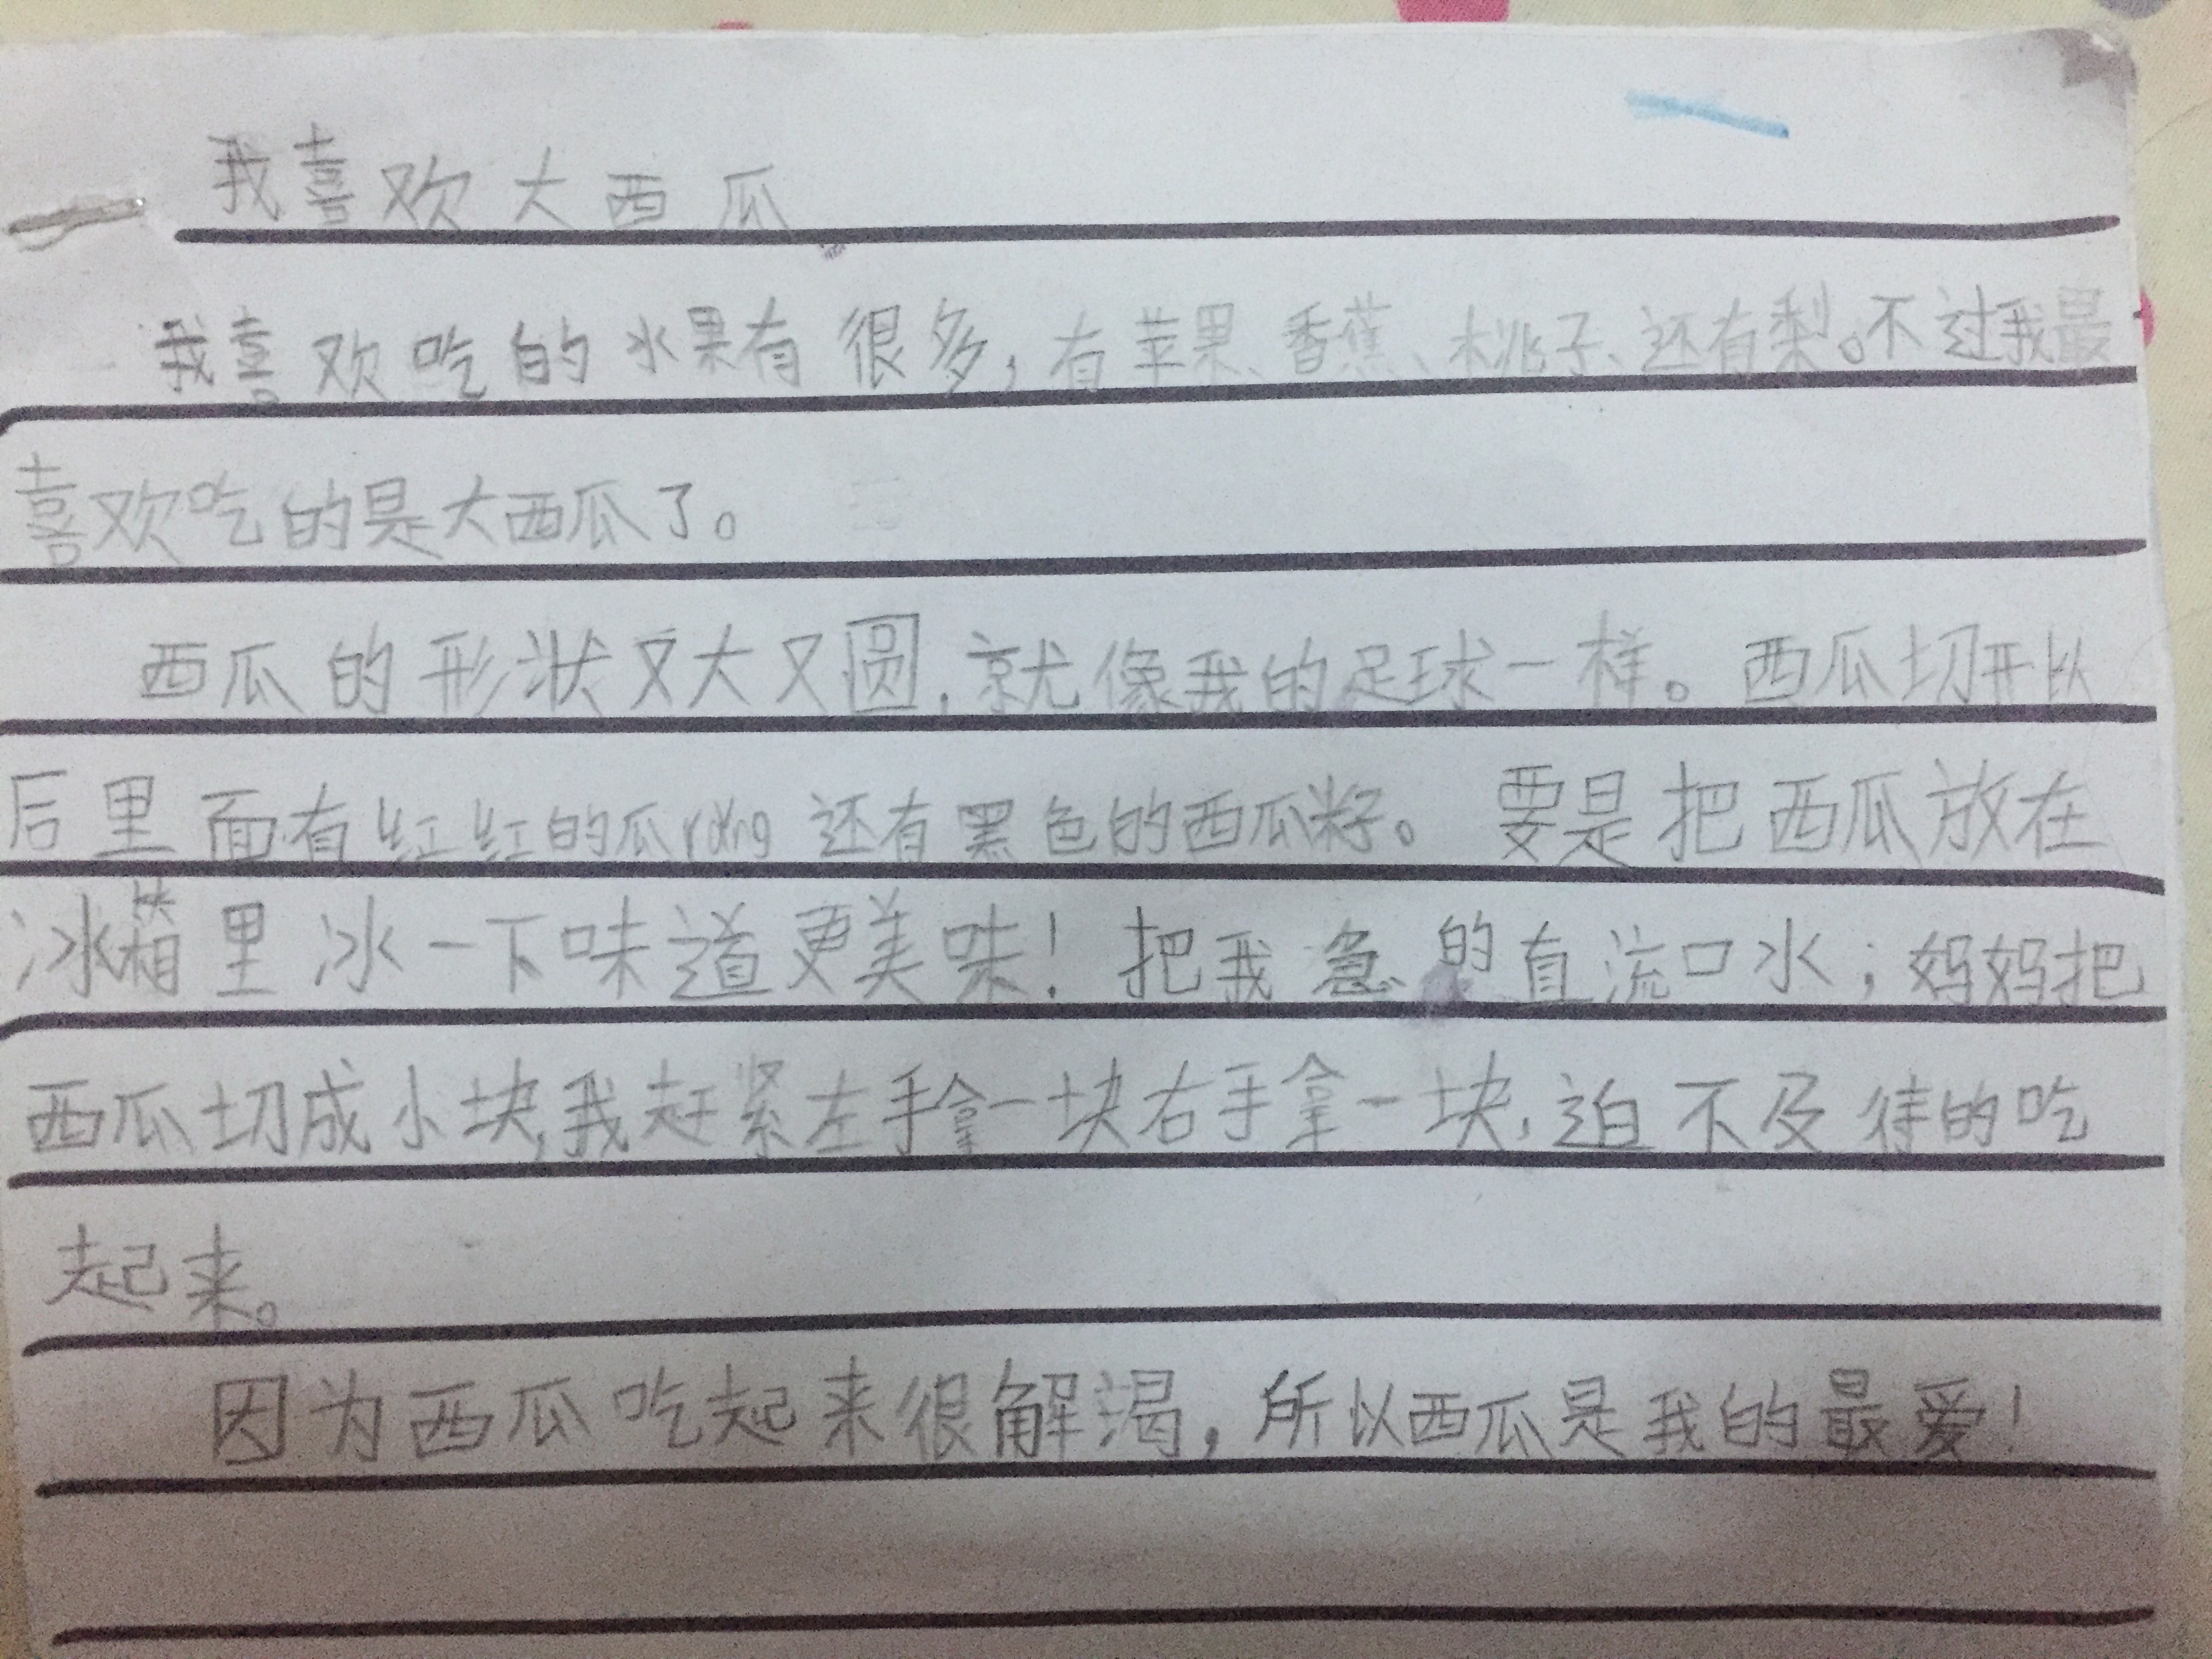 我喜欢大西瓜
我喜欢吃的水果有很多,有苹果、香蕉、桃子、还有梨。不过我最
喜欢吃的是大西瓜了。
西瓜的形状又大又圆,就像我的足球一样。西瓜切开以
后里面有红红的瓜ráng还有黑色的西瓜籽。要是把西瓜放在
冰箱里冰一下味道更美味!把我急的直流口水;妈妈把
西瓜切成小块,我赶紧左手拿一块右手拿一块,迫不及待的吃
起来。
因为西瓜吃起来很解渴,所以西瓜是我的最爱!